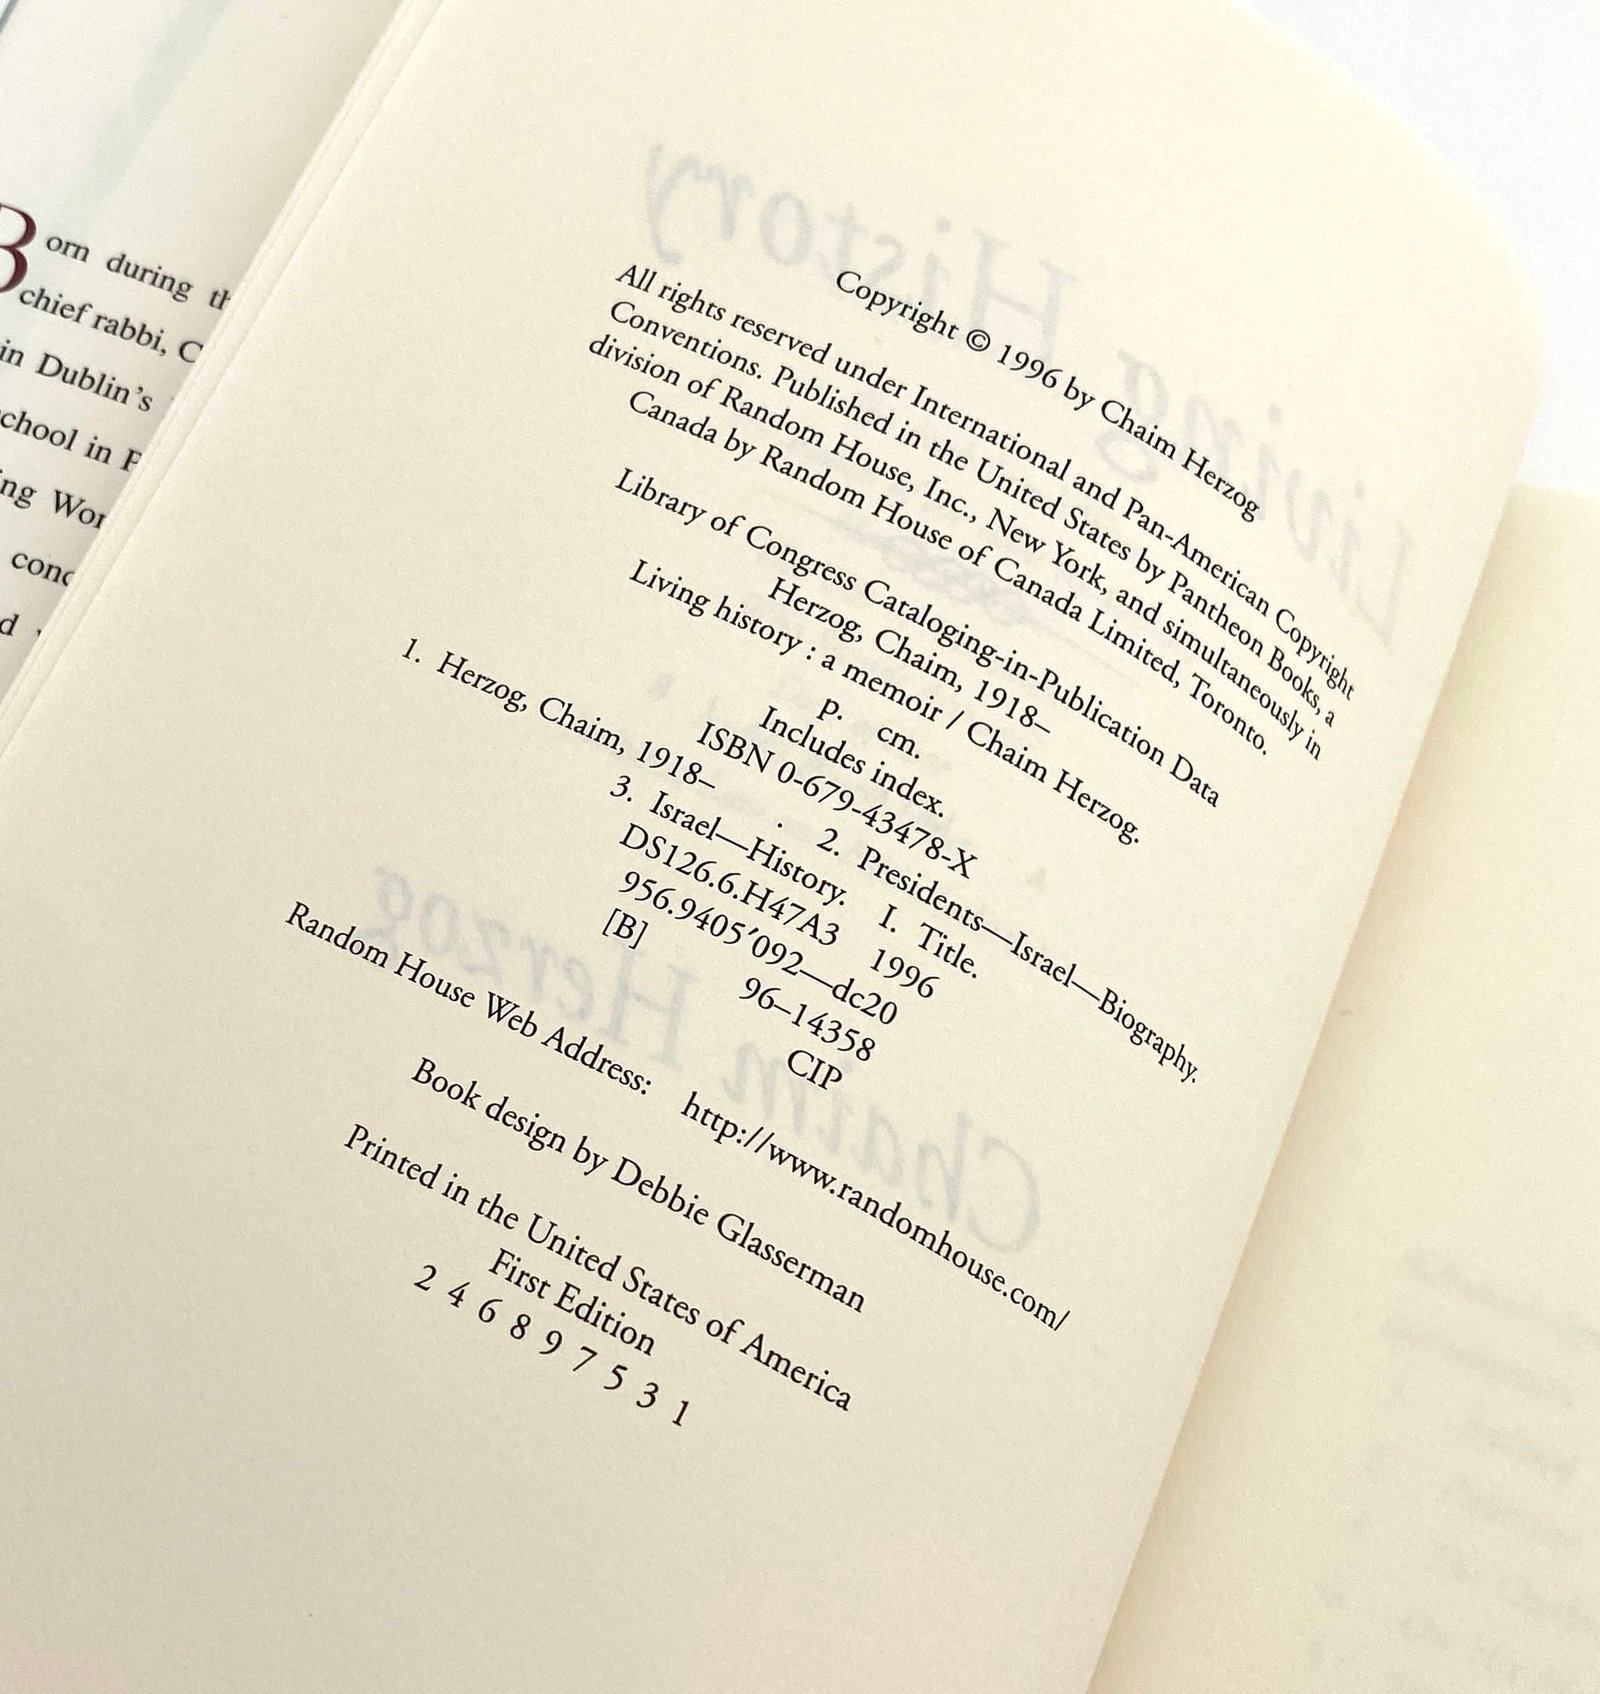 orn during th
chief rabbi, C
in Dublin's
chool in P
ng Wor
conc
d
Copyright © 1996 by Chaim Herzog
All rights reserved under International and Pan-American Copyright
Conventions. Published in the United States by Pantheon Books, a
division of Random House, Inc., New York, and simultaneously in
Canada by Random House of Canada Limited, Toronto.
Library of Congress Cataloging-in-Publication Data
Herzog, Chaim, 1918–
Living history : a memoir / Chaim Herzog.
p. cm.
Includes index.
ISBN 0-679-43478-X
1. Herzog, Chaim, 1918– . 2. Presidents—Israel—Biography.
3. Israel—History. I. Title.
DS126.6.H47A3 1996
956.9405′092—dc20
[B] 96–14358
CIP
Random House Web Address: http://www.randomhouse.com/
Book design by Debbie Glasserman
Printed in the United States of America
First Edition
2 4 6 8 9 7 5 3 1
Living History
Chaim Herzog